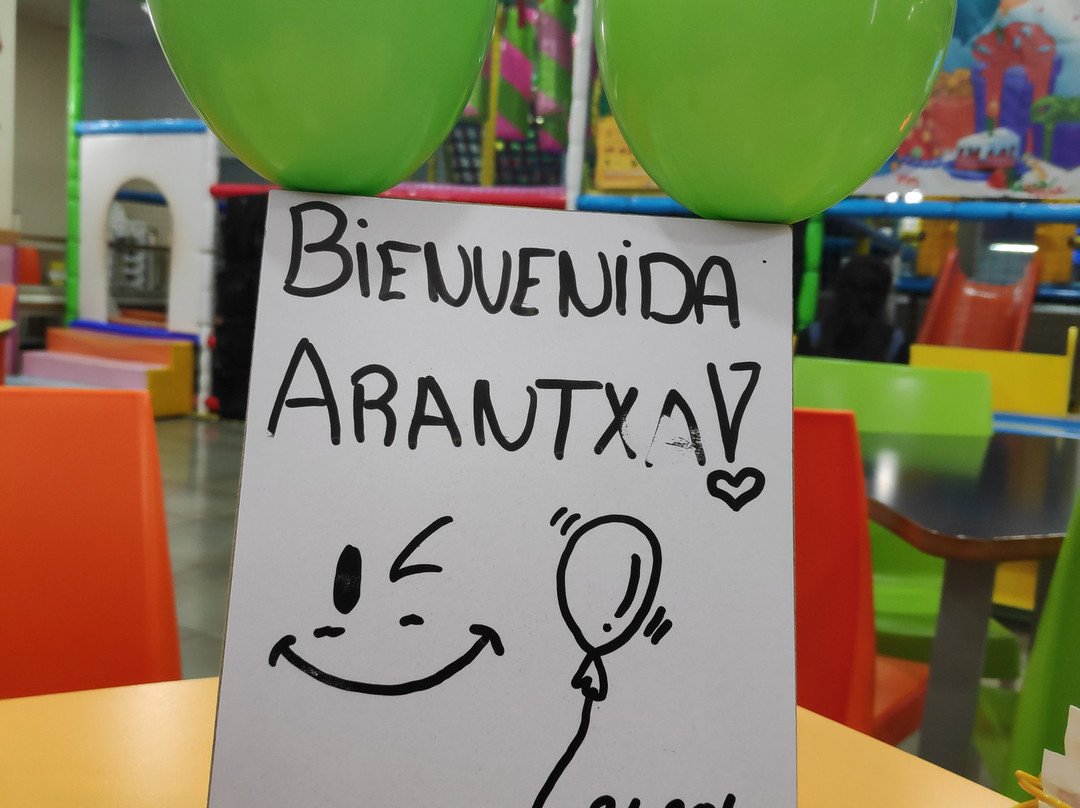 BiENVENiDA
ARANTXA!